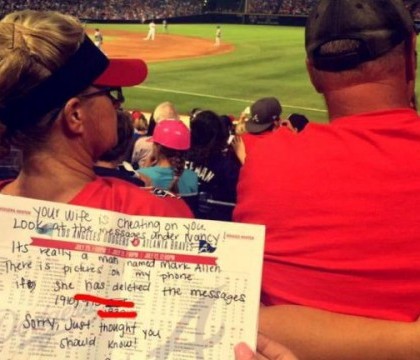 your wife is cheating on you
Look At the messages under Nancy!
LOS ANGELES DODGERS ATLANTA BRAVES
Its really a man named Mark Allen
There is pictures on my phone
if she has deleted the messages
Sorry, Just thought you
should know!